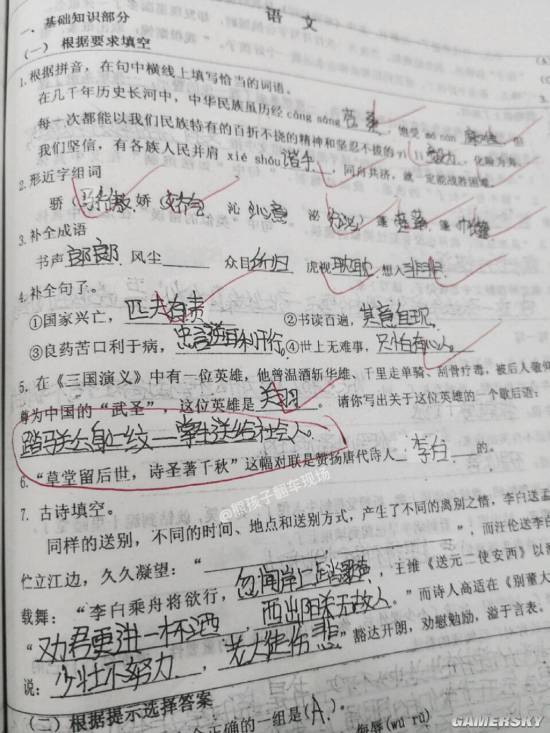 语 文
一、基础知识部分
（一）根据要求填空
1.根据拼音，在句中横线上填写恰当的词语。
在几千年历史长河中，中华民族虽历经 cāng sāng
每一次都能以我们民族特有的百折不挠的精神和坚忍不拔的 yì lì 毅力，化险为夷。
我们坚信，有各族人民并肩 xié shǒu 谐手，同舟共济，就一定能战胜困难。
2.形近字组词
骄（骄傲）娇（ ）沁（沁 ）泌（分泌）蓬（ ）篷（帐篷）
3.补全成语
书声郎郎 风尘 众目所归 虎视耽耽 想入非非
4.补全句子。
①国家兴亡，匹夫有责 ②书读百遍，其意自现。
③良药苦口利于病，忠言逆耳利于行 ④世上无难事，只怕有心人。
5.在《三国演义》中有一位英雄，他曾温酒斩华雄、千里走单骑、刮骨疗毒，被后人敬仰
尊为中国的“武圣”，这位英雄是关羽。 请你写出关于这位英雄的一个歇后语：
关公身上纹 掌声送给社会人。
6.“草堂留后世，诗圣著千秋”这幅对联是赞扬唐代诗人 李白 的。
@熊孩子翻车现场
7.古诗填空。
同样的送别，不同的时间、地点和送别方式，产生了不同的离别之情，李白送孟
伫立江边，久久凝望：“ ， ”，而汪伦送李
载舞：“李白乘舟将欲行，忽闻岸上踏歌声，王维《送元二使安西》以
“劝君更进一杯酒，西出阳关无故人。”而诗人高适在《别董大
说：少壮不努力，老大徒伤悲”豁达开朗，劝慰勉励，溢于言表。
（二）根据提示选择答案
正确的一组是（A）。
侮辱(wǔ rǔ)
GAMERSKY